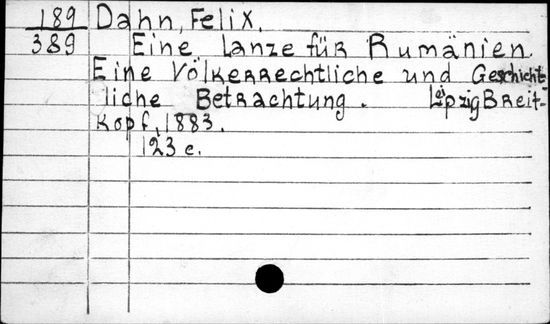 189 Dahn, Felix.
389 Eine Lanze für Rumänien.
Eine Völkerrechtliche und Geschicht
liche Betrachtung. Leipzig Breit-
kopf, 1883.
123 c.